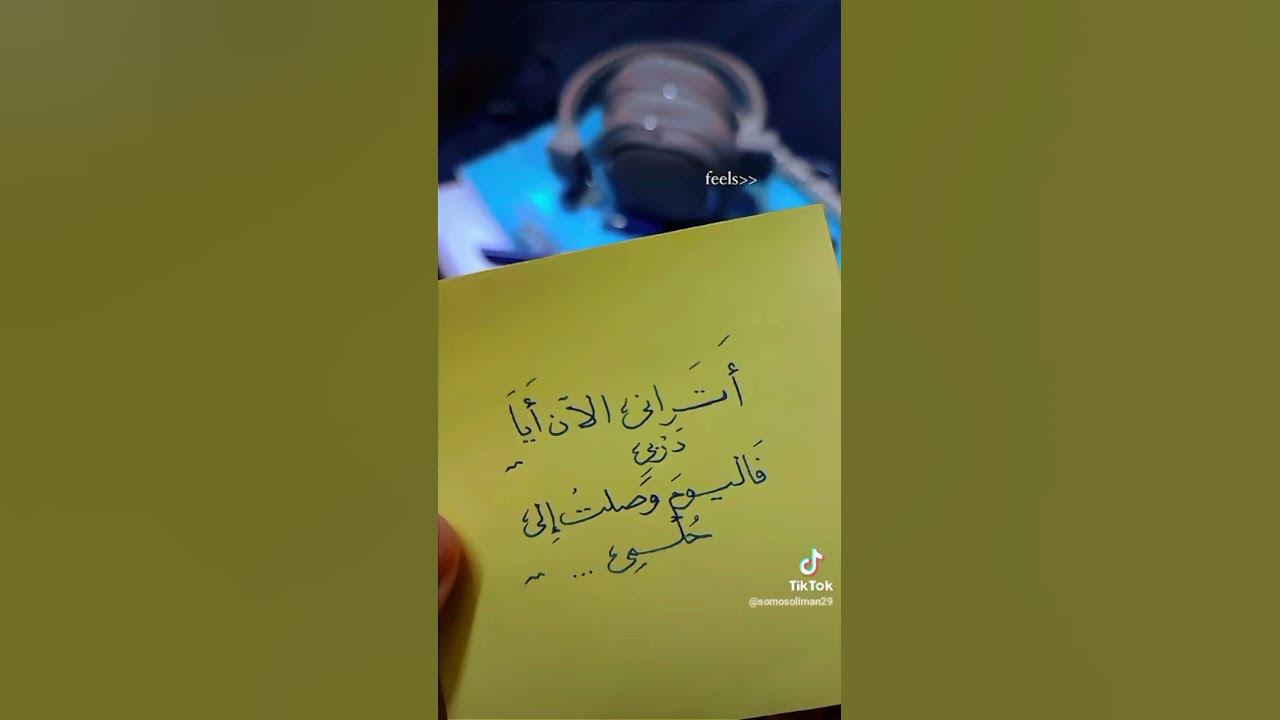 feels>>
أَتَرانى الآن أَيَا
دَرْبى
فَاليومَ وَصلتُ إِلى
حُلْمِى ...
TikTok
@somosoliman29